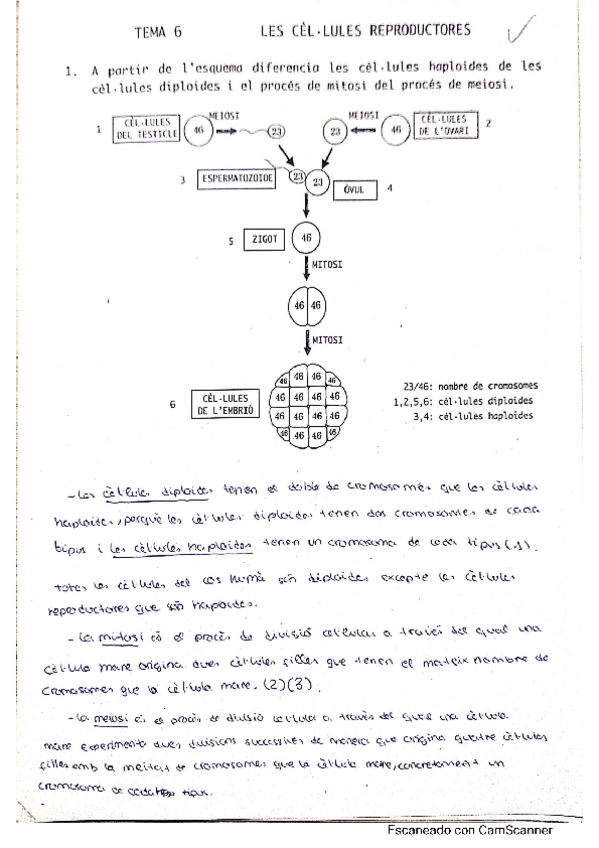 TEMA 6 LES CÈL·LULES REPRODUCTORES
1. A partir de l'esquema diferencia les cèl·lules haploides de les
cèl·lules diploides i el procés de mitosi del procés de meiosi.
1 CÈL·LULES DEL TESTICLE 46 MEIOSI 23 23 MEIOSI 46 CÈL·LULES DE L'OVARI 2
3 ESPERMATOZOIDE 23 23 ÒVUL 4
5 ZIGOT 46
MITOSI
46 46
MITOSI
6 CÈL·LULES DE L'EMBRIÓ
46 46 46 46
46 46 46 46
46 46 46 46
46 46 46 46
23/46: nombre de cromosomes
1,2,5,6: cèl·lules diploides
3,4: cèl·lules haploides
- Les cèl·lules diploides tenen el doble de cromosomes que les cèl·lules
haploides, perquè les cèl·lules diploides tenen dos cromosomes de cada
tipus i les cèl·lules haploides tenen un cromosoma de cada tipus (1).
totes les cèl·lules del cos humà són diploides excepte les cèl·lules
reproductores que són haploides.
- La mitosi és el procés de divisió cel·lular a través del qual una
cèl·lula mare origina dues cèl·lules filles que tenen el mateix nombre de
cromosomes que la cèl·lula mare. (2)(3).
- La meiosi és el procés de divisió cel·lular a través del qual una cèl·lula
mare experimenta dues divisions successives de manera que origina quatre cèl·lules
filles amb la meitat de cromosomes que la cèl·lula mare, concretament un
cromosoma de cada tipus.
Escaneado con CamScanner